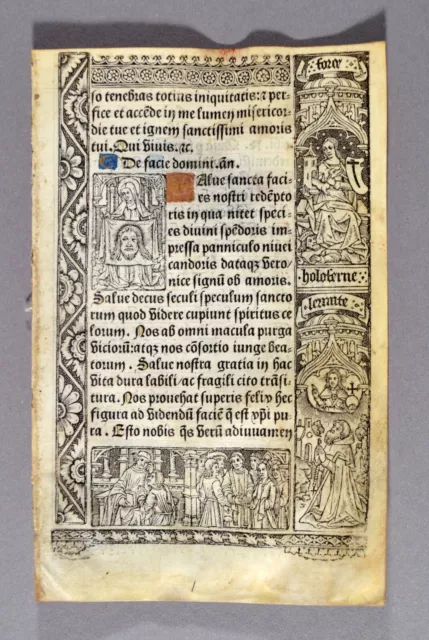 so tenebras totius iniquitatis: ⁊ per
fice et accēde in me lumen misericor
die tue et ignem sanctissimi amoris
tui. Qui viuis. ⁊c.
De facie domini. añ.
Salue sancta faci
es nostri redēpto
ris in qua nitet speci
es diuini splēdoris im-
pressa panniculo niuei
candoris dataqꝫ Vero
nice signū ob amoris.
Salue decus seculi speculum sancto
rum quod videre cupiunt spiritus ce
lorum. Nos ab omni macula purga
viciorū: atqꝫ nos cōsortio iunge bea-
torum. Salue nostra gratia in hac
vita dura labili / ac fragili cito trāsi
tura. Nos prouehat superis felix hec
figura ad videndū faciē q̄ est xp̄i pu
ra. Esto nobis q̄s verū adiuuamen
force
holoferne